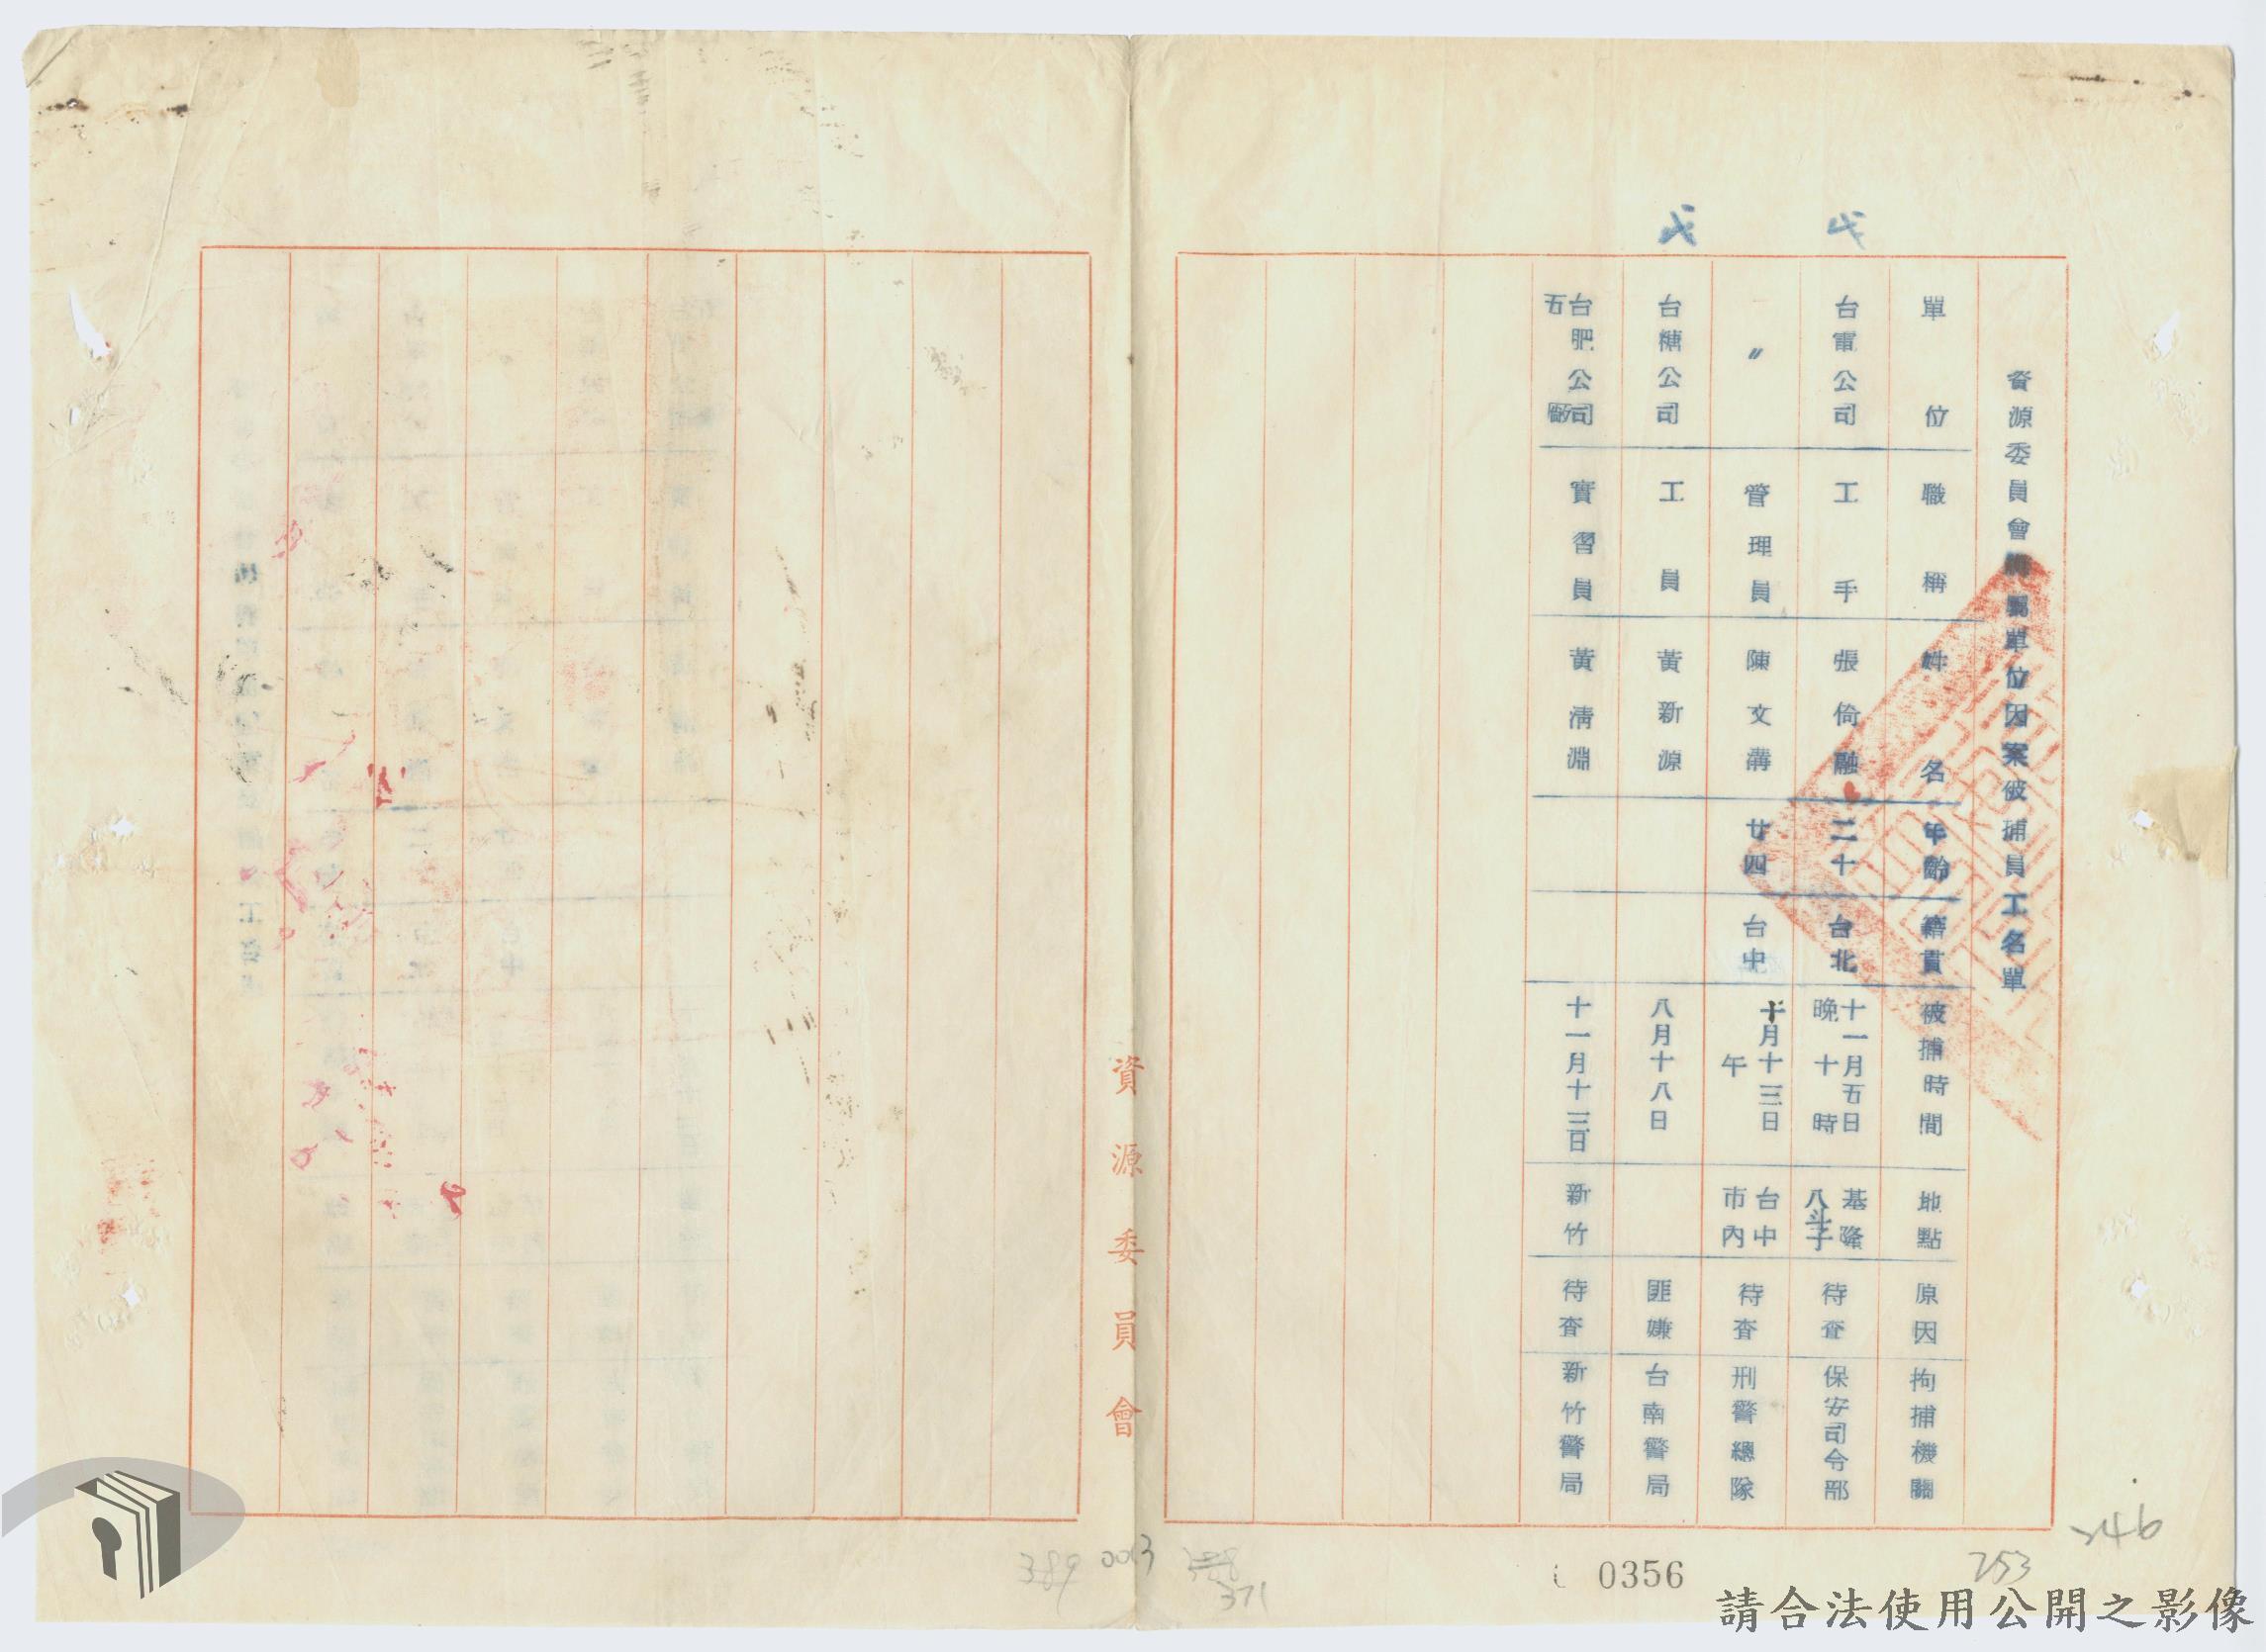 資源委員會附屬單位因案被捕員工名單
單位 職稱 姓名 年齡 籍貫 被捕時間 地點 原因 拘捕機關
台電公司 工手 張倚融 二十 台北 十一月五日晚十時 基隆八斗子 待查 保安司令部
〃 管理員 陳文溝 廿四 台中 十月十三日午 台中市內 待查 刑警總隊
台糖公司 工員 黃新源 八月十八日 匪嫌 台南警局
台肥公司五廠 實習員 黃清淵 十一月十三日 新竹 待查 新竹警局
資源委員會
389
0013
371
0356
253
請合法使用公開之影像